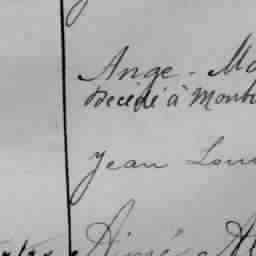 Ange - Ma
Décédé à Montr
Jean Loui
Aimé